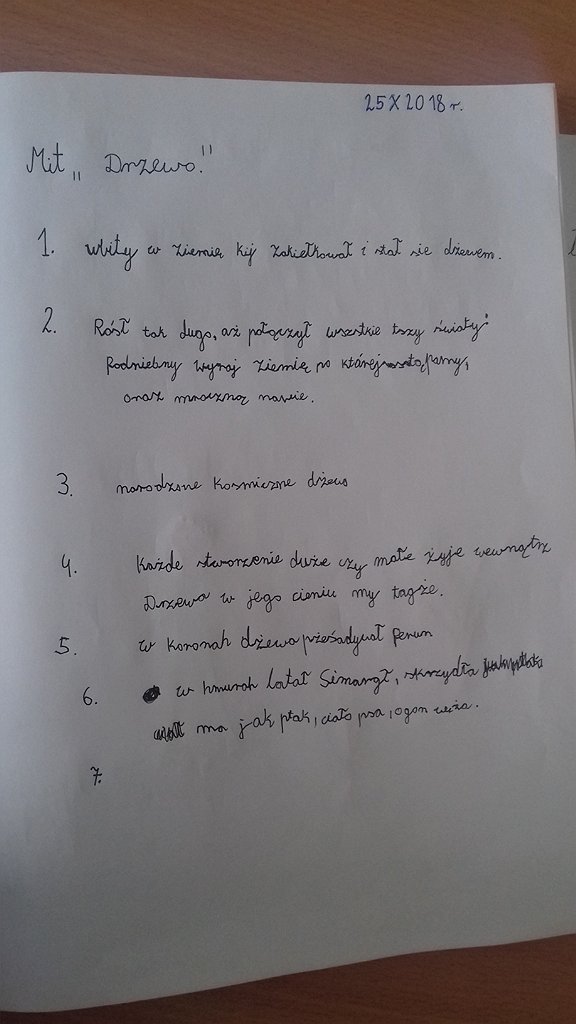 25 X 2018 r.
Mit „Drzewo."
1. Wbity w ziemię kij zakiełkował i stał sie dżewem.
2. Rósł tak dugo, aż połączył wszstkie tszy światy:
Podniebny wyraj ziemię po której stąpamy,
oraz mroczną nawie.
3. narodzone kosmiczne dżewo
4. Każde stworzenie duże czy małe żyje wewnątrz
Drzewa w jego cieniu my tagże.
5. w koronah dżewa pżesadywał perun
6. w hmurah latał Simargł, skrzydła
ma jak ptak, ciało psa, ogon węża.
7.